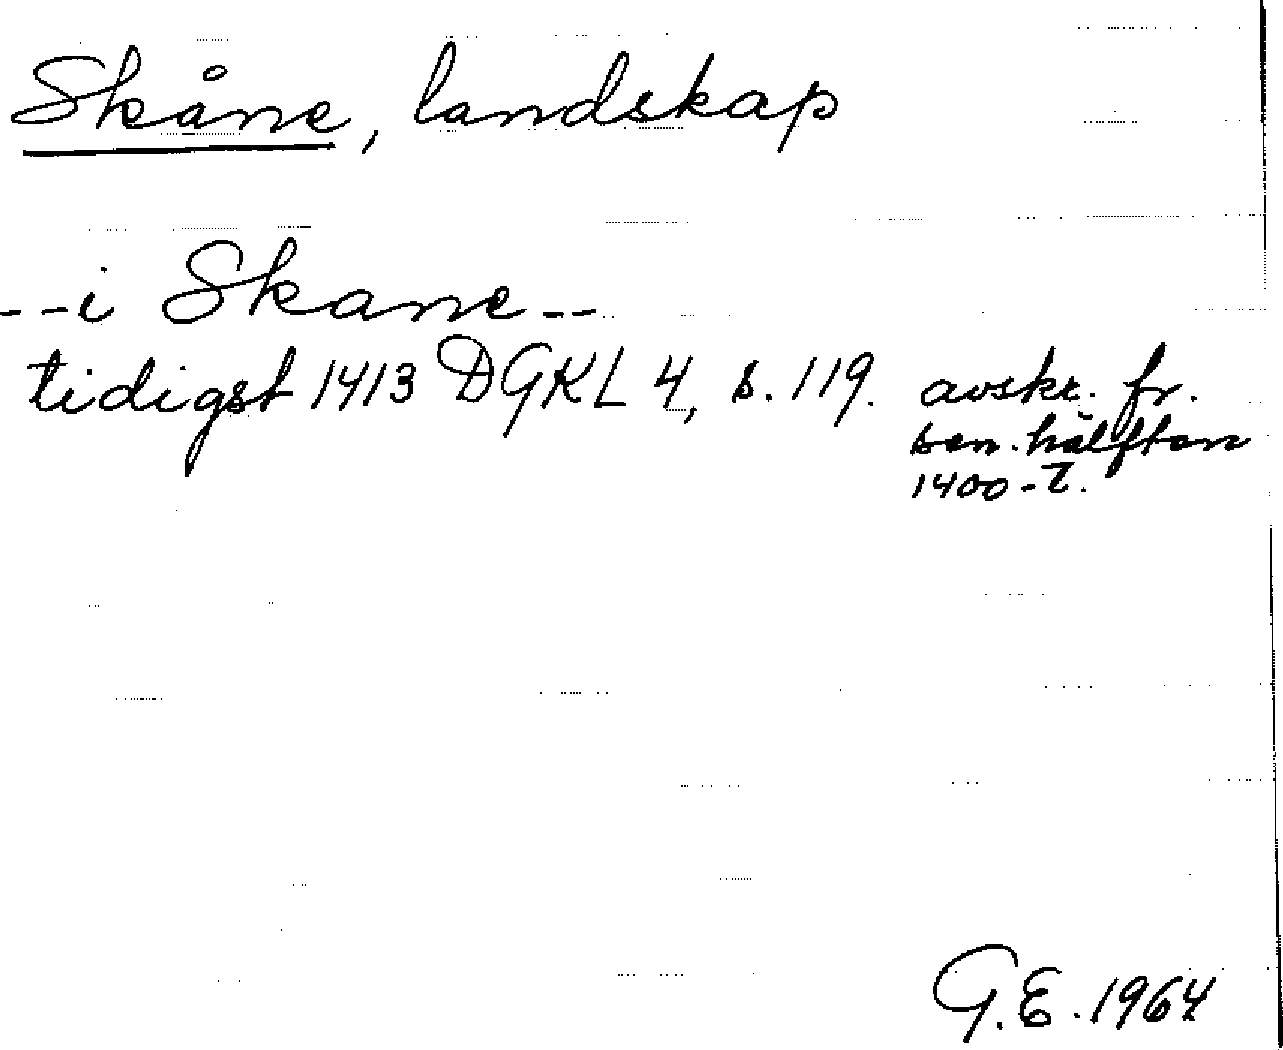 Skåne, landskap
--i Skane--
tidigst 1413 DGKL 4, s. 119. avskr. fr.
sen. hälften
1400-t.
G.E. 1964